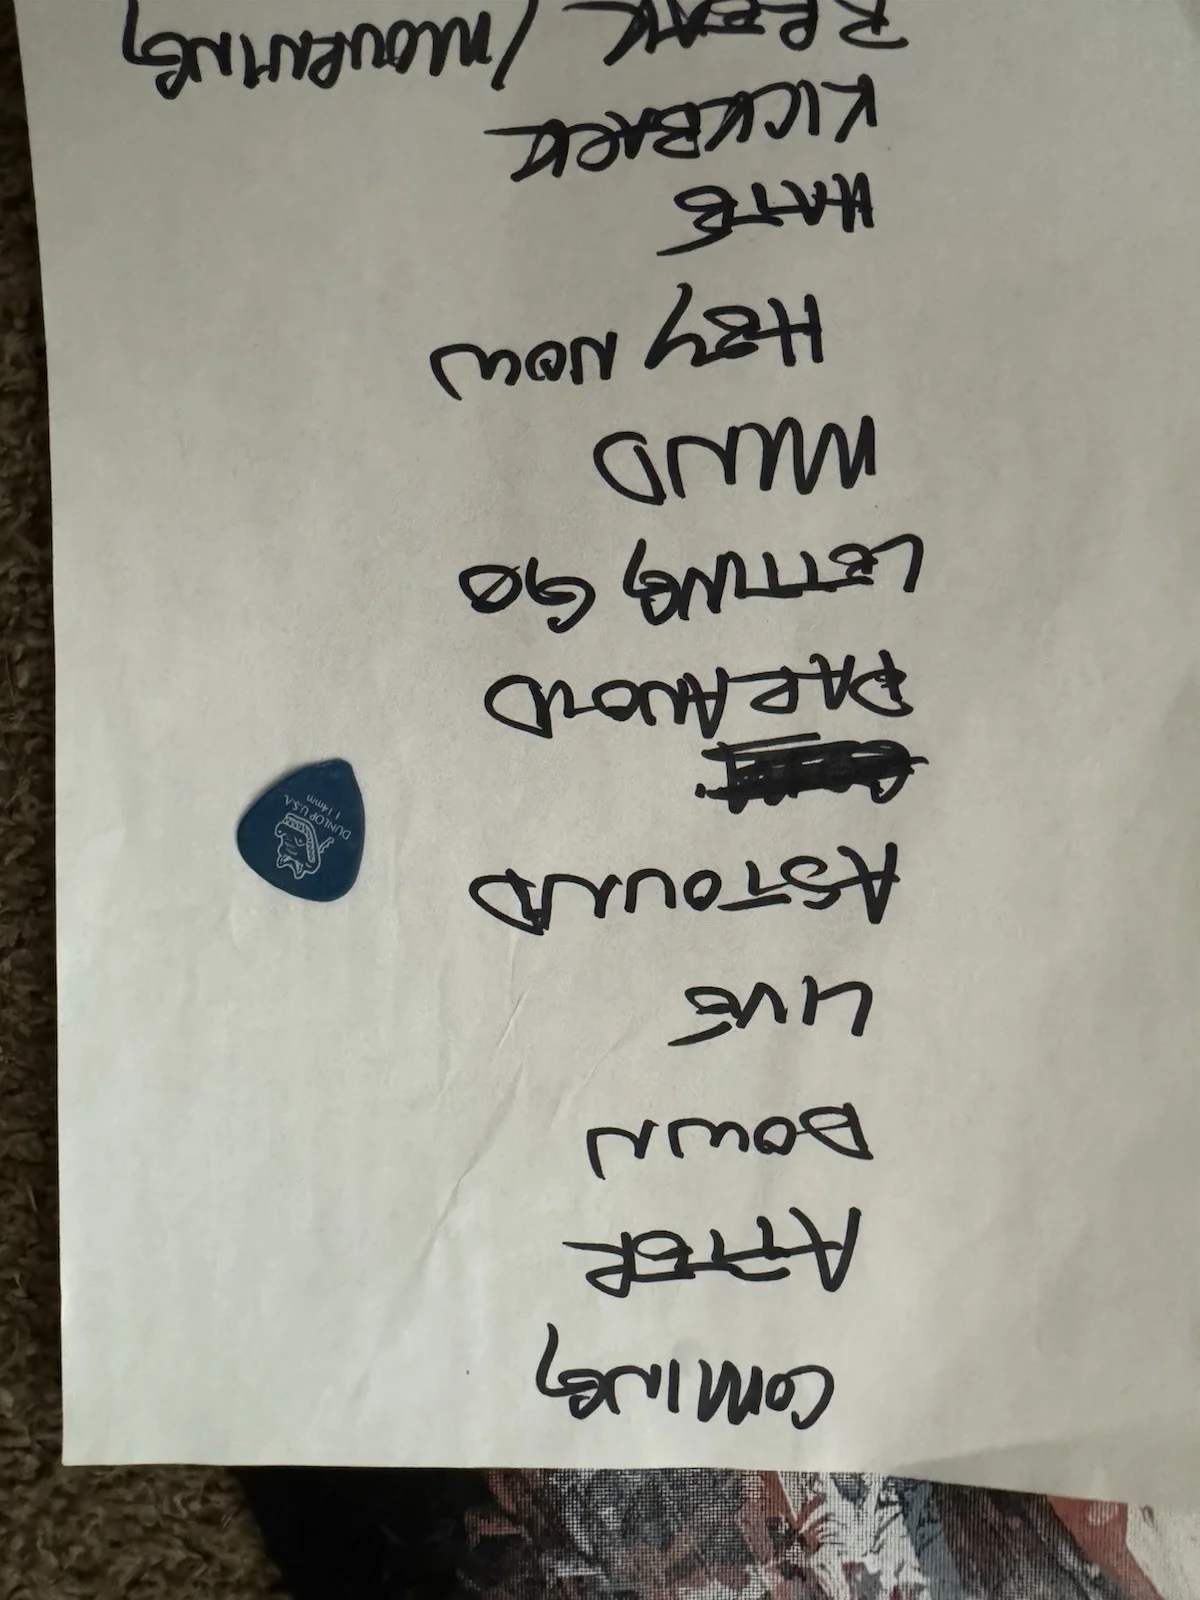 COMING
AFTER
DOWN
LIVE
ASTOUND
PARANOID
LETTING GO
MIND
HEY NOW
HATE
KICKBACK
/ MOURNING
DUNLOP U.S.A.
1.14mm